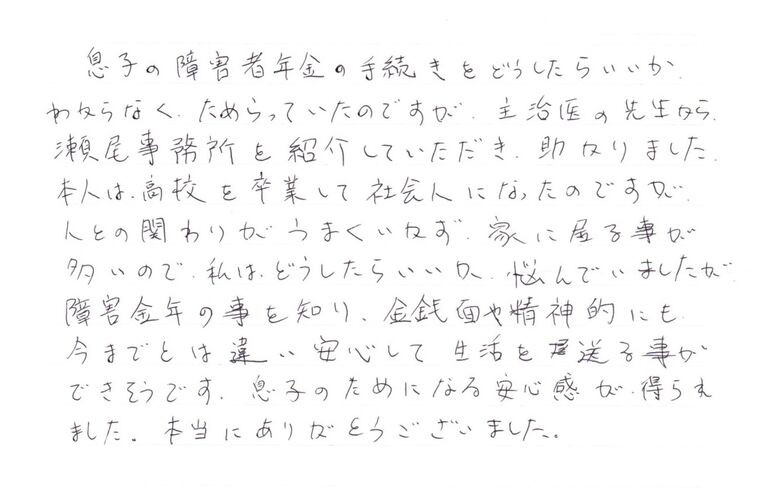 息子の障害者年金の手続きをどうしたらいいか、
わからなく、ためらっていたのですが、主治医の先生から、
瀬尾事務所を紹介していただき、助かりました。
本人は、高校を卒業して社会人になったのですが、
人との関わりがうまくいかず、家に居る事が
多いので、私は、どうしたらいいか、悩んでいましたが、
障害金年の事を知り、金銭面や精神的にも
今までとは違い安心して生活を送る事が
できそうです。息子のためになる安心感が、得られ
ました。本当にありがとうございました。